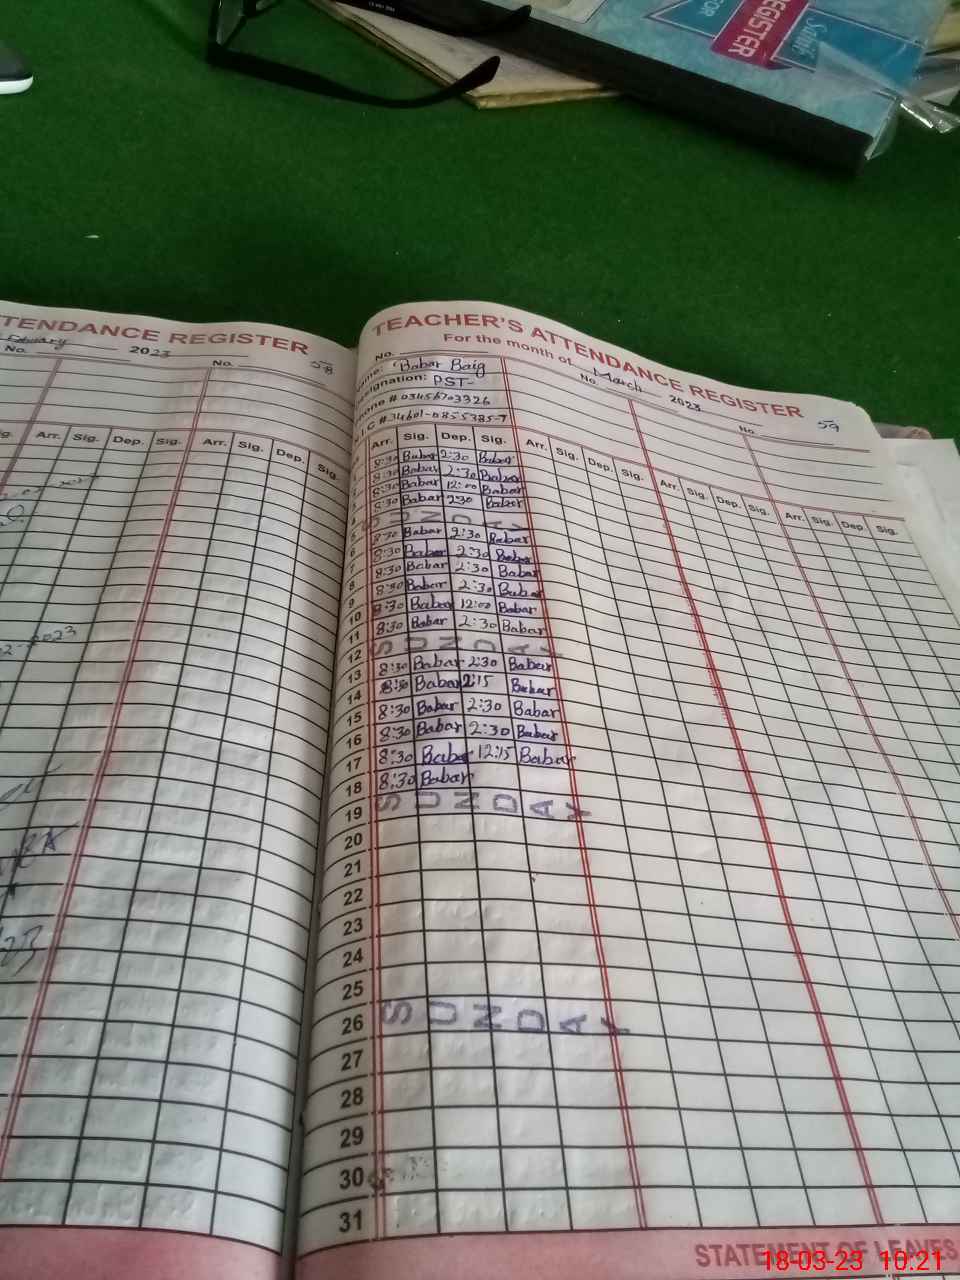 REGISTER
FOR
TENDANCE REGISTER
February 2023
No. No. 58
Arr. Sig. Dep. Sig. Arr. Sig. Dep. Sig.
TEACHER'S ATTENDANCE REGISTER
For the month of March 2023
No. No. No. 59
Name: Babar Baig
Designation: PST-
Phone # 03456703326
N.I.C # 34601-0855385-7
Arr. Sig. Dep. Sig. Arr. Sig. Dep. Sig. Arr. Sig. Dep. Sig. Arr. Sig. Dep. Sig.
8:30 Babar 2:30 Babar
8:30 Babar 2:30 Babar
8:30 Babar 12:00 Babar
8:30 Babar 2:30 Babar
5 SUNDAY
6 8:30 Babar 2:30 Babar
7 8:30 Babar 2:30 Babar
8 8:30 Babar 2:30 Babar
9 8:30 Babar 2:30 Babar
10 8:30 Babar 12:00 Babar
11 8:30 Babar 2:30 Babar
12 SUNDAY
13 8:30 Babar 2:30 Babar
14 8:30 Babar 2:15 Babar
15 8:30 Babar 2:30 Babar
16 8:30 Babar 2:30 Babar
17 8:30 Babar 12:15 Babar
18 8:30 Babar
19 SUNDAY
20
21
22
23
24
25
26 SUNDAY
27
28
29
30
31
STATEMENT OF LEAVES
18-03-23 10:21